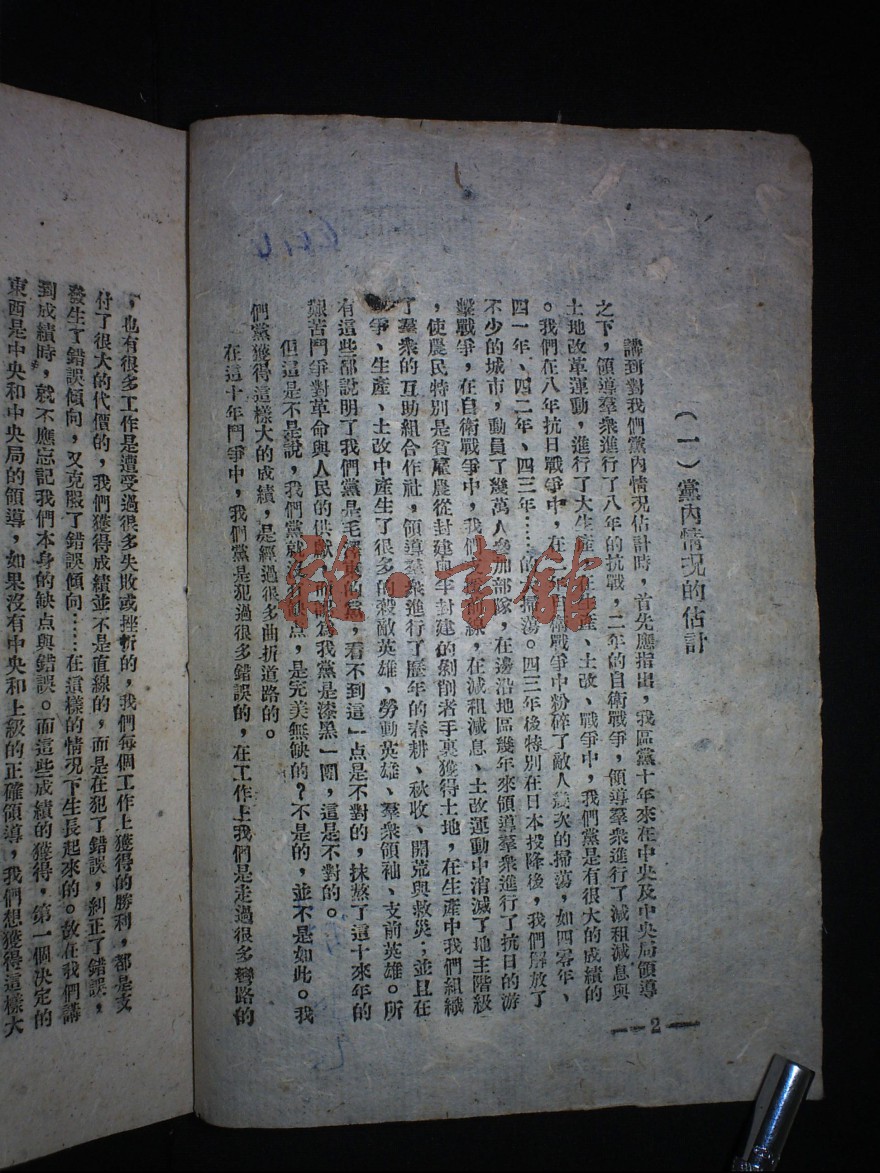 (一)黨內情況的估計
講到對我們黨內情况估計時，首先應指出，我區黨十年來在中央及中央局領導
之下，領導羣衆進行了八年的抗戰，二年的自衛戰爭，領導羣衆進行了減租減息與
土地改革運動，進行了大生產。在生產、土改、戰爭中，我們黨是有很大的成績的
。我們在八年抗日戰爭中，在 衛戰爭中粉碎了敵人 次的掃蕩，如四零年、
四一年、四二年、四三年…… 的 掃蕩。四三年後特別在日本投降後，我們解放了
不少的城市，動員了幾萬人參加部隊，在邊沿地區幾年來領導羣衆進行了抗日的游
擊戰爭，在自衛戰爭中，我們支援 線，在減租減息、土改運動中消滅了地主階級
，使農民特別是貧雇農從封建與半封建的剝削者手裏獲得土地，在生產中我們組織
了羣衆的互助組合作社，領導羣衆進行了歷年的春耕、秋收、開荒與救災；並且在
爭、生產、土改中產生了很多的殺敵英雄、勞動英雄、羣衆領袖、支前英雄。所
有這些都說明了我們黨是毛澤東的黨，看不到這一点是不對的，抹煞了這十來年的
艱苦鬥爭對革命與人民的供獻，而認為我黨是漆黑一團，這是不對的。
但這是不是說，我們黨就沒有缺点，是完美無缺的？不是的，並不是如此。我
們黨獲得這樣大的成績，是經過很多曲折道路的。
在這十年鬥爭中，我們黨是犯過很多錯誤的，在工作上我們是走過很多彎路的
—2—
，也有很多工作是遭受過很多失敗或挫折的，我們每個工作上獲得的勝利，都是支
付了很大的代價的，我們獲得成績並不是直線的，而是在犯了錯誤，糾正了錯誤，
發生了錯誤傾向，又克服了錯誤傾向……在這樣的情況下生長起來的。故在我們講
到成績時，就不應忘記我們本身的缺点與錯誤。而這些成績的獲得，第一個決定的
東西是中央和中央局的領導，如果沒有中央和上級的正確領導，我們想獲得這樣大
雜·書館